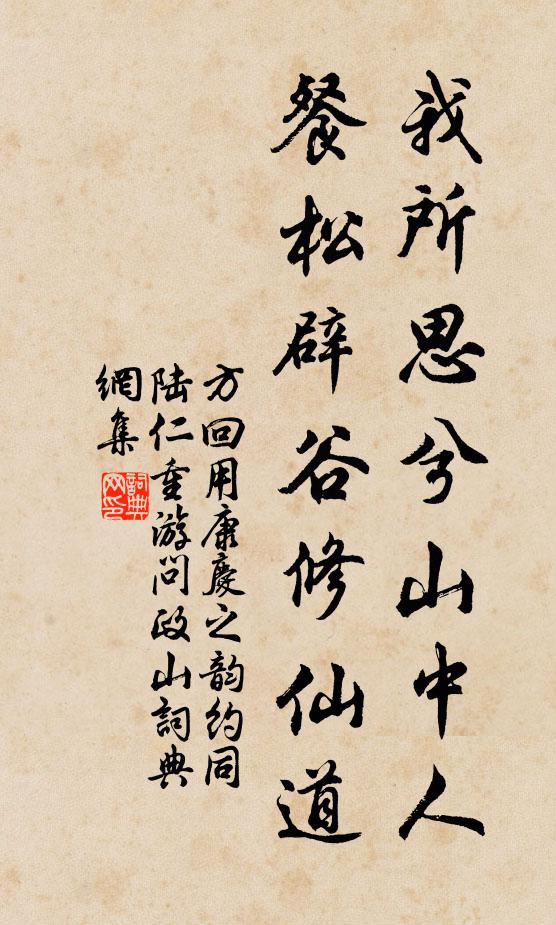 我所思兮山中人
餐松辟谷修仙道
方回用康庆之韵约同
陆仁重游问政山詞典
網集
詞典
网印